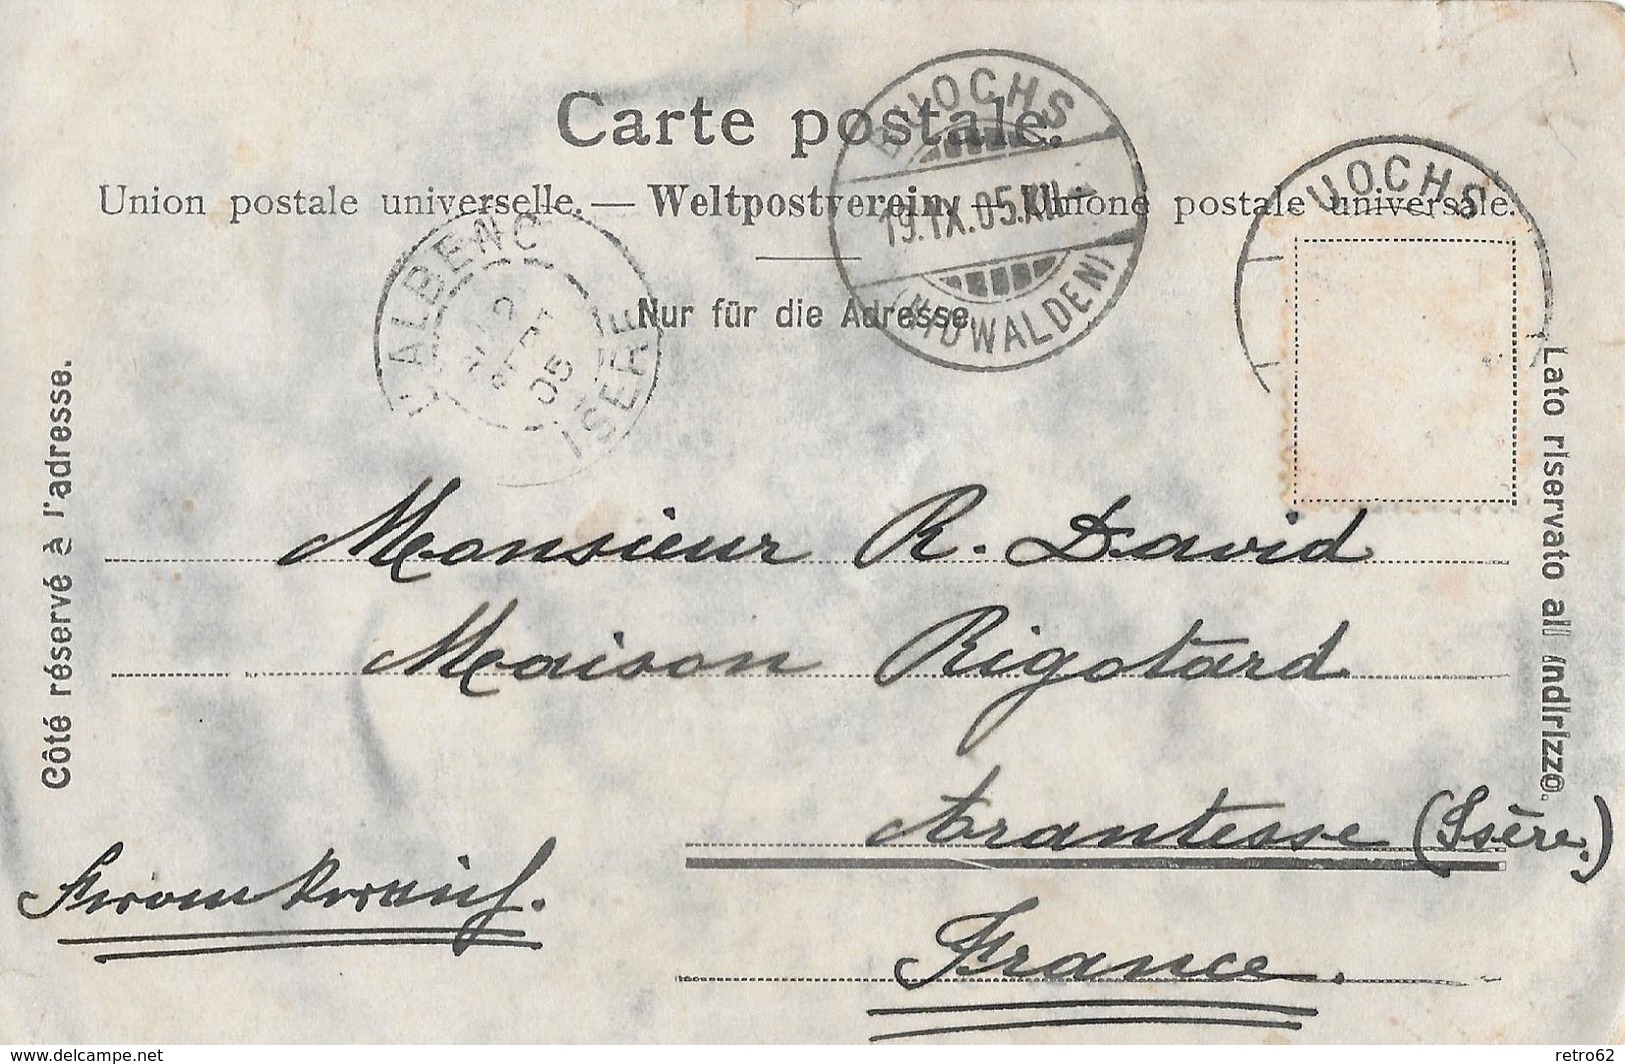 Carte postale.
Union postale universelle. — Weltpostverein. — Unione postale universale.
Nur für die Adresse
BUOCHS
19.IX.05.XII-
(NIDWALDEN)
UOCHS
ALBENC
SEPT
05
ISERE
Côté réservé à l'adresse.
Lato riservato all indirizzo.
Monsieur R. David
Maison Rigotard
(Isère.)
France.
www.delcampe.net
retro62